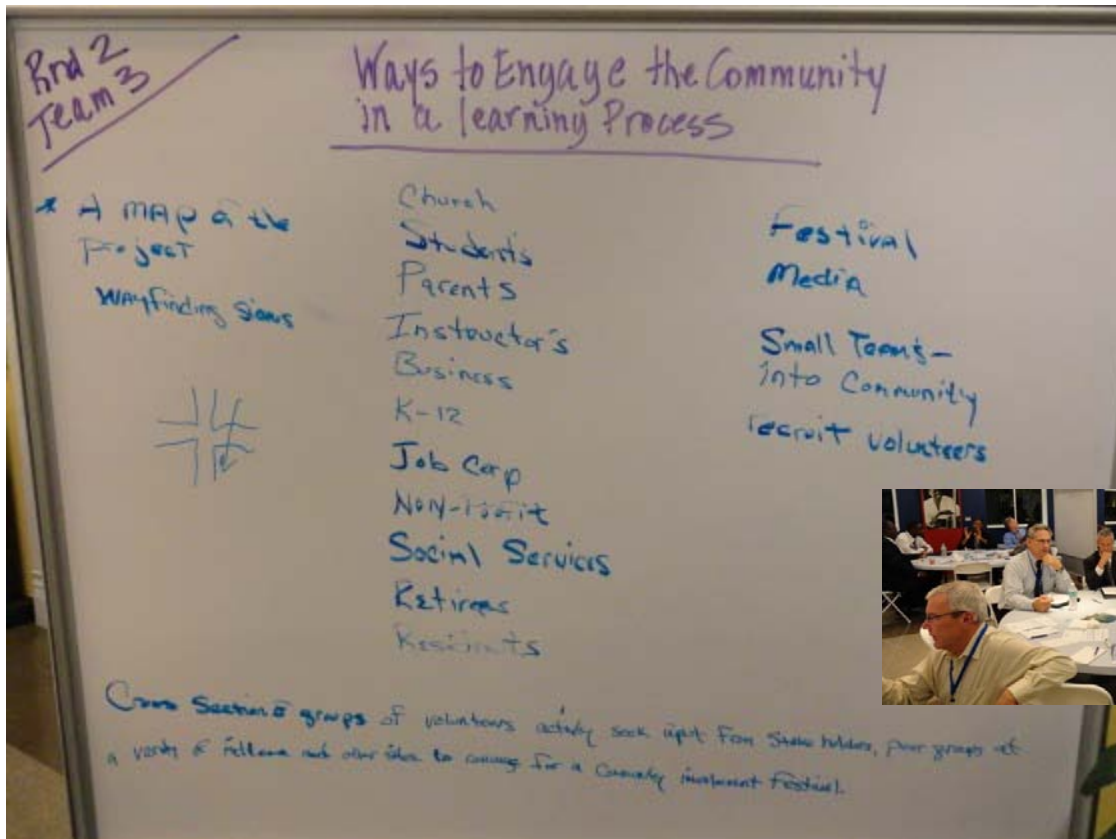 Rnd 2
Team 3
Ways to Engage the Community
in a learning Process
* A MAP of the
project
Wayfinding Signs
Church
Student's
Parents
Instructor's
Business
K-12
Job Corp
Non-Profit
Social Services
Retirees
Residents
Festival
Media
Small Team's -
into Community
recruit volunteers
Cross Section of groups of volunteers seek input From Stake holders, peer groups at
a and other for a Community Festival.